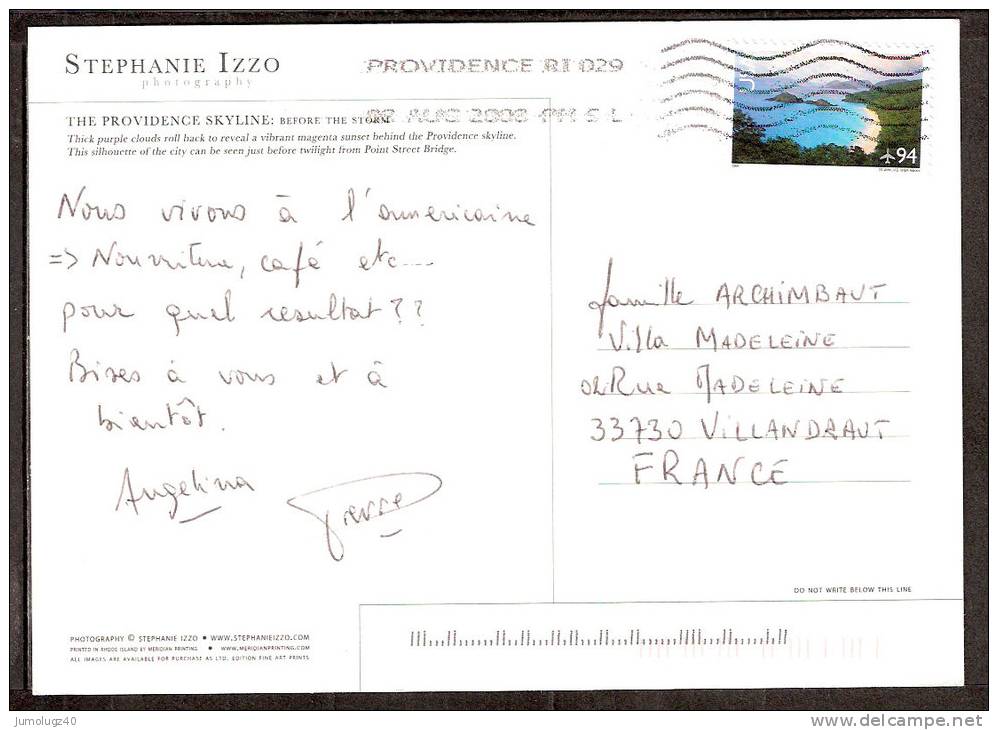 STEPHANIE IZZO
photography
PROVIDENCE RI 029
AUG 2008 PM 5 L
94
THE PROVIDENCE SKYLINE: BEFORE THE STORM
Thick purple clouds roll back to reveal a vibrant magenta sunset behind the Providence skyline.
This silhouette of the city can be seen just before twilight from Point Street Bridge.
Nous vivons à l'americaine
=> Nourriture, café etc....
pour quel resultat ??
Bises à vous et à
bientôt.
Angelina
Pierre
famille ARCHIMBAUT
Villa MADELEINE
Rue MADELEINE
33730 VILLANDRAUT
FRANCE
DO NOT WRITE BELOW THIS LINE
PHOTOGRAPHY © STEPHANIE IZZO • WWW.STEPHANIEIZZO.COM
PRINTED IN RHODE ISLAND BY MERIDIAN PRINTING • WWW.MERIDIANPRINTING.COM
ALL IMAGES ARE AVAILABLE FOR PURCHASE AS LTD. EDITION FINE ART PRINTS
jumolug40
www.delcampe.net